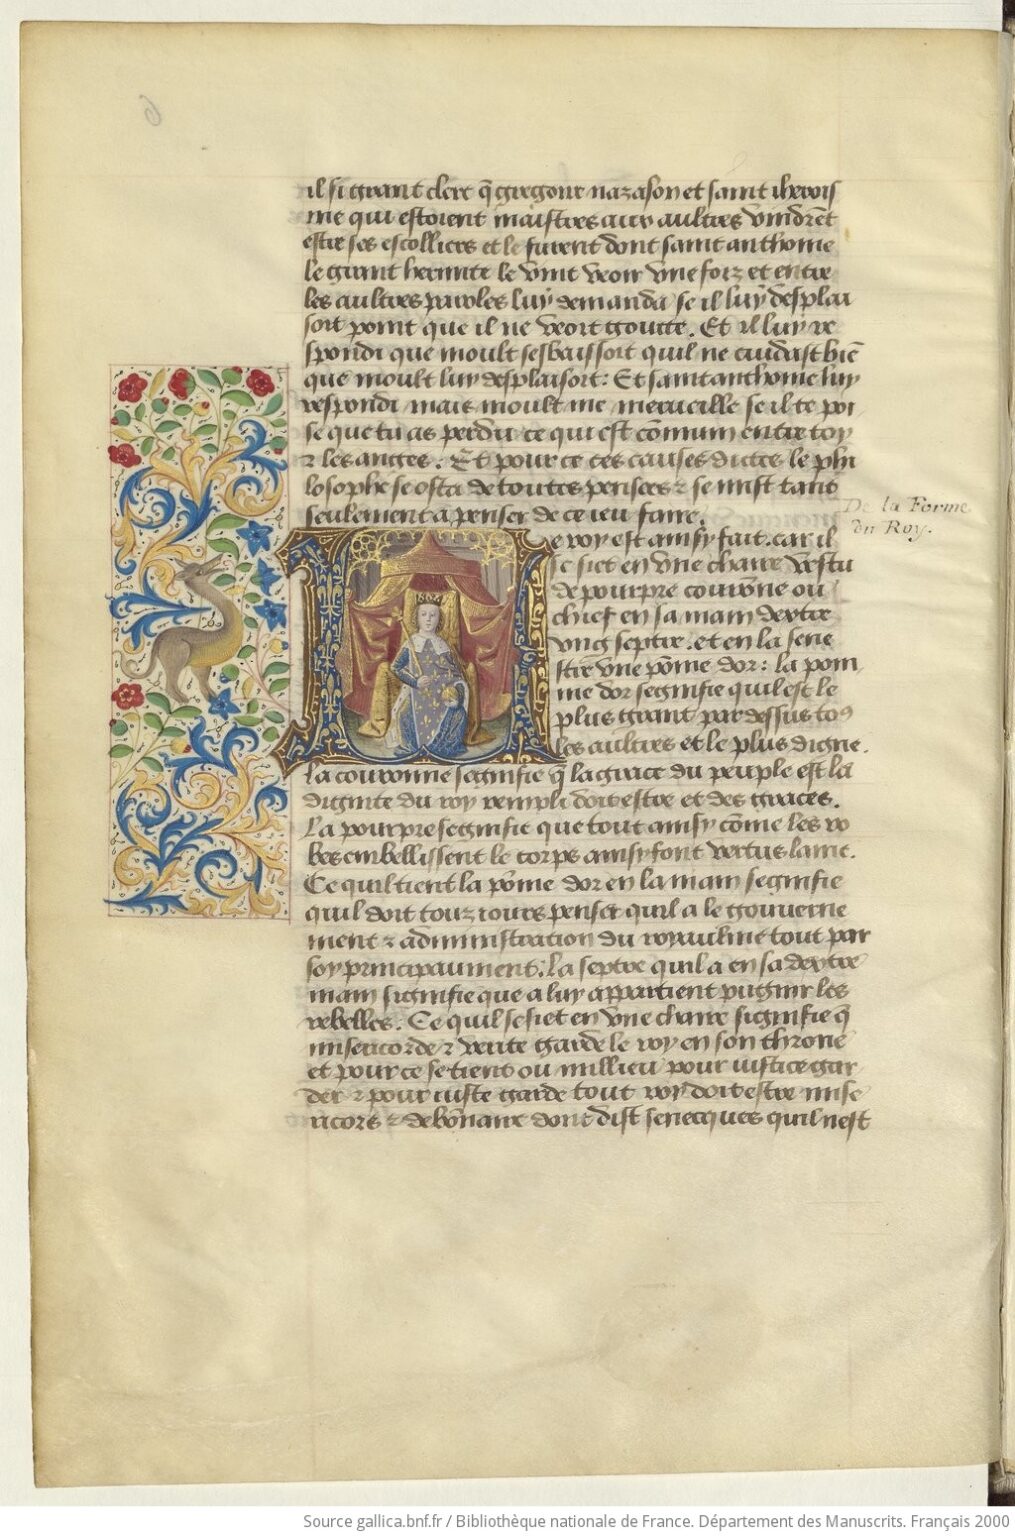 il si grant clerc q̃ gregoire nazason et saint iherois
me qui estoient maistres aux aultres vindrẽt
estre ses escolliers et le furent dont saint anthoine
le grant hermite le vint veoir vne foiz et entre
les aultres paroles luy demanda se il luy desplai
soit point que il ne veoit goutte. Et il luy re
spondi que moult sesbaissoit quil ne cuidast biẽ
que moult luy desplaisoit: Et saint anthoine luy
respondi mais moult me merueille se il te poi
se que tu as perdu ce qui est cõmun entre toy
⁊ les anges. Et pour ce ces causes dictes le phi
losophe se osta de toutes pensees ⁊ se mist tant
seulement a penser de ce ieu faire.
De la Forme
du Roy.
Le roy est ainsy fait. car il
se siet en vne chaire vestu
de pourpre couronne ou
chief en sa main dextre
vng septre. et en la sene
stre vne põme dor: la pom
me dor segnifie quil est le
plus grant par dessus toꝰ
les aultres et le plus digne.
La couronne segnifie q̃ la grace du peuple est la
dignite du roy rempli doit estre et des graces.
La pourpre segnifie que tout ainsy cõme les ro
bes embellissent le corps ainsy font vertus lame.
Ce quil tient la põme dor en la main segnifie
quil doit touz iours penser quil a le gouuerne
ment ⁊ administration du royaulme tout par
soy principaument. La septre quil a en sa dextre
main signifie que a luy appartient pugnir les
rebelles. Ce quil se siet en vne chaire signifie q̃
misericorde ⁊ verite garde le roy en son throne
et pour ce se tient ou millieu pour iustice gar
der ⁊ pour iuste garde tout roy doit estre mise
ricors ⁊ debõnaire dont dist senecques quil nest
Source gallica.bnf.fr / Bibliothèque nationale de France. Département des Manuscrits. Français 2000